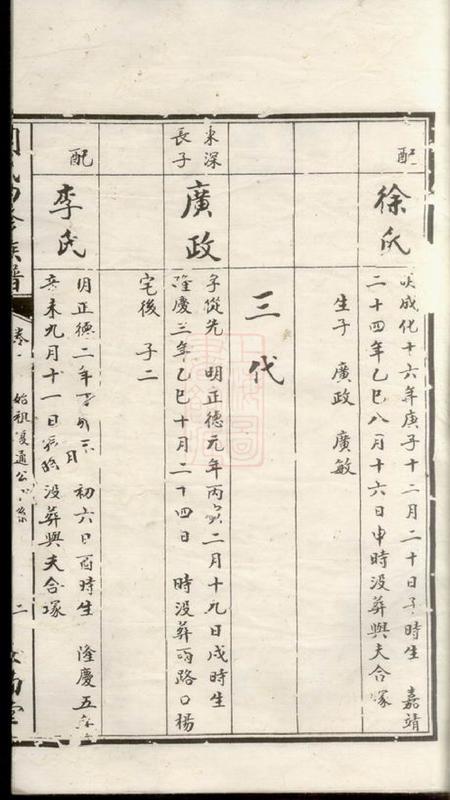 配
徐氏
明成化十六年庚子十二月二十日子時生 嘉靖
二十四年乙巳八月十六日申時没葬與夫合塚
生子 廣政 廣敏
三代
東深
長子
廣政
字從先 明正德元年丙寅二月十九日戌時生
隆慶三年己巳十月二十四日 時没葬兩路口楊
宅後 子二
配
李氏
明正德二年 月 初六日酉時生 隆慶五年
辛未九月十一日 没葬與夫合塚
族譜
卷
始祖 通公
二
堂